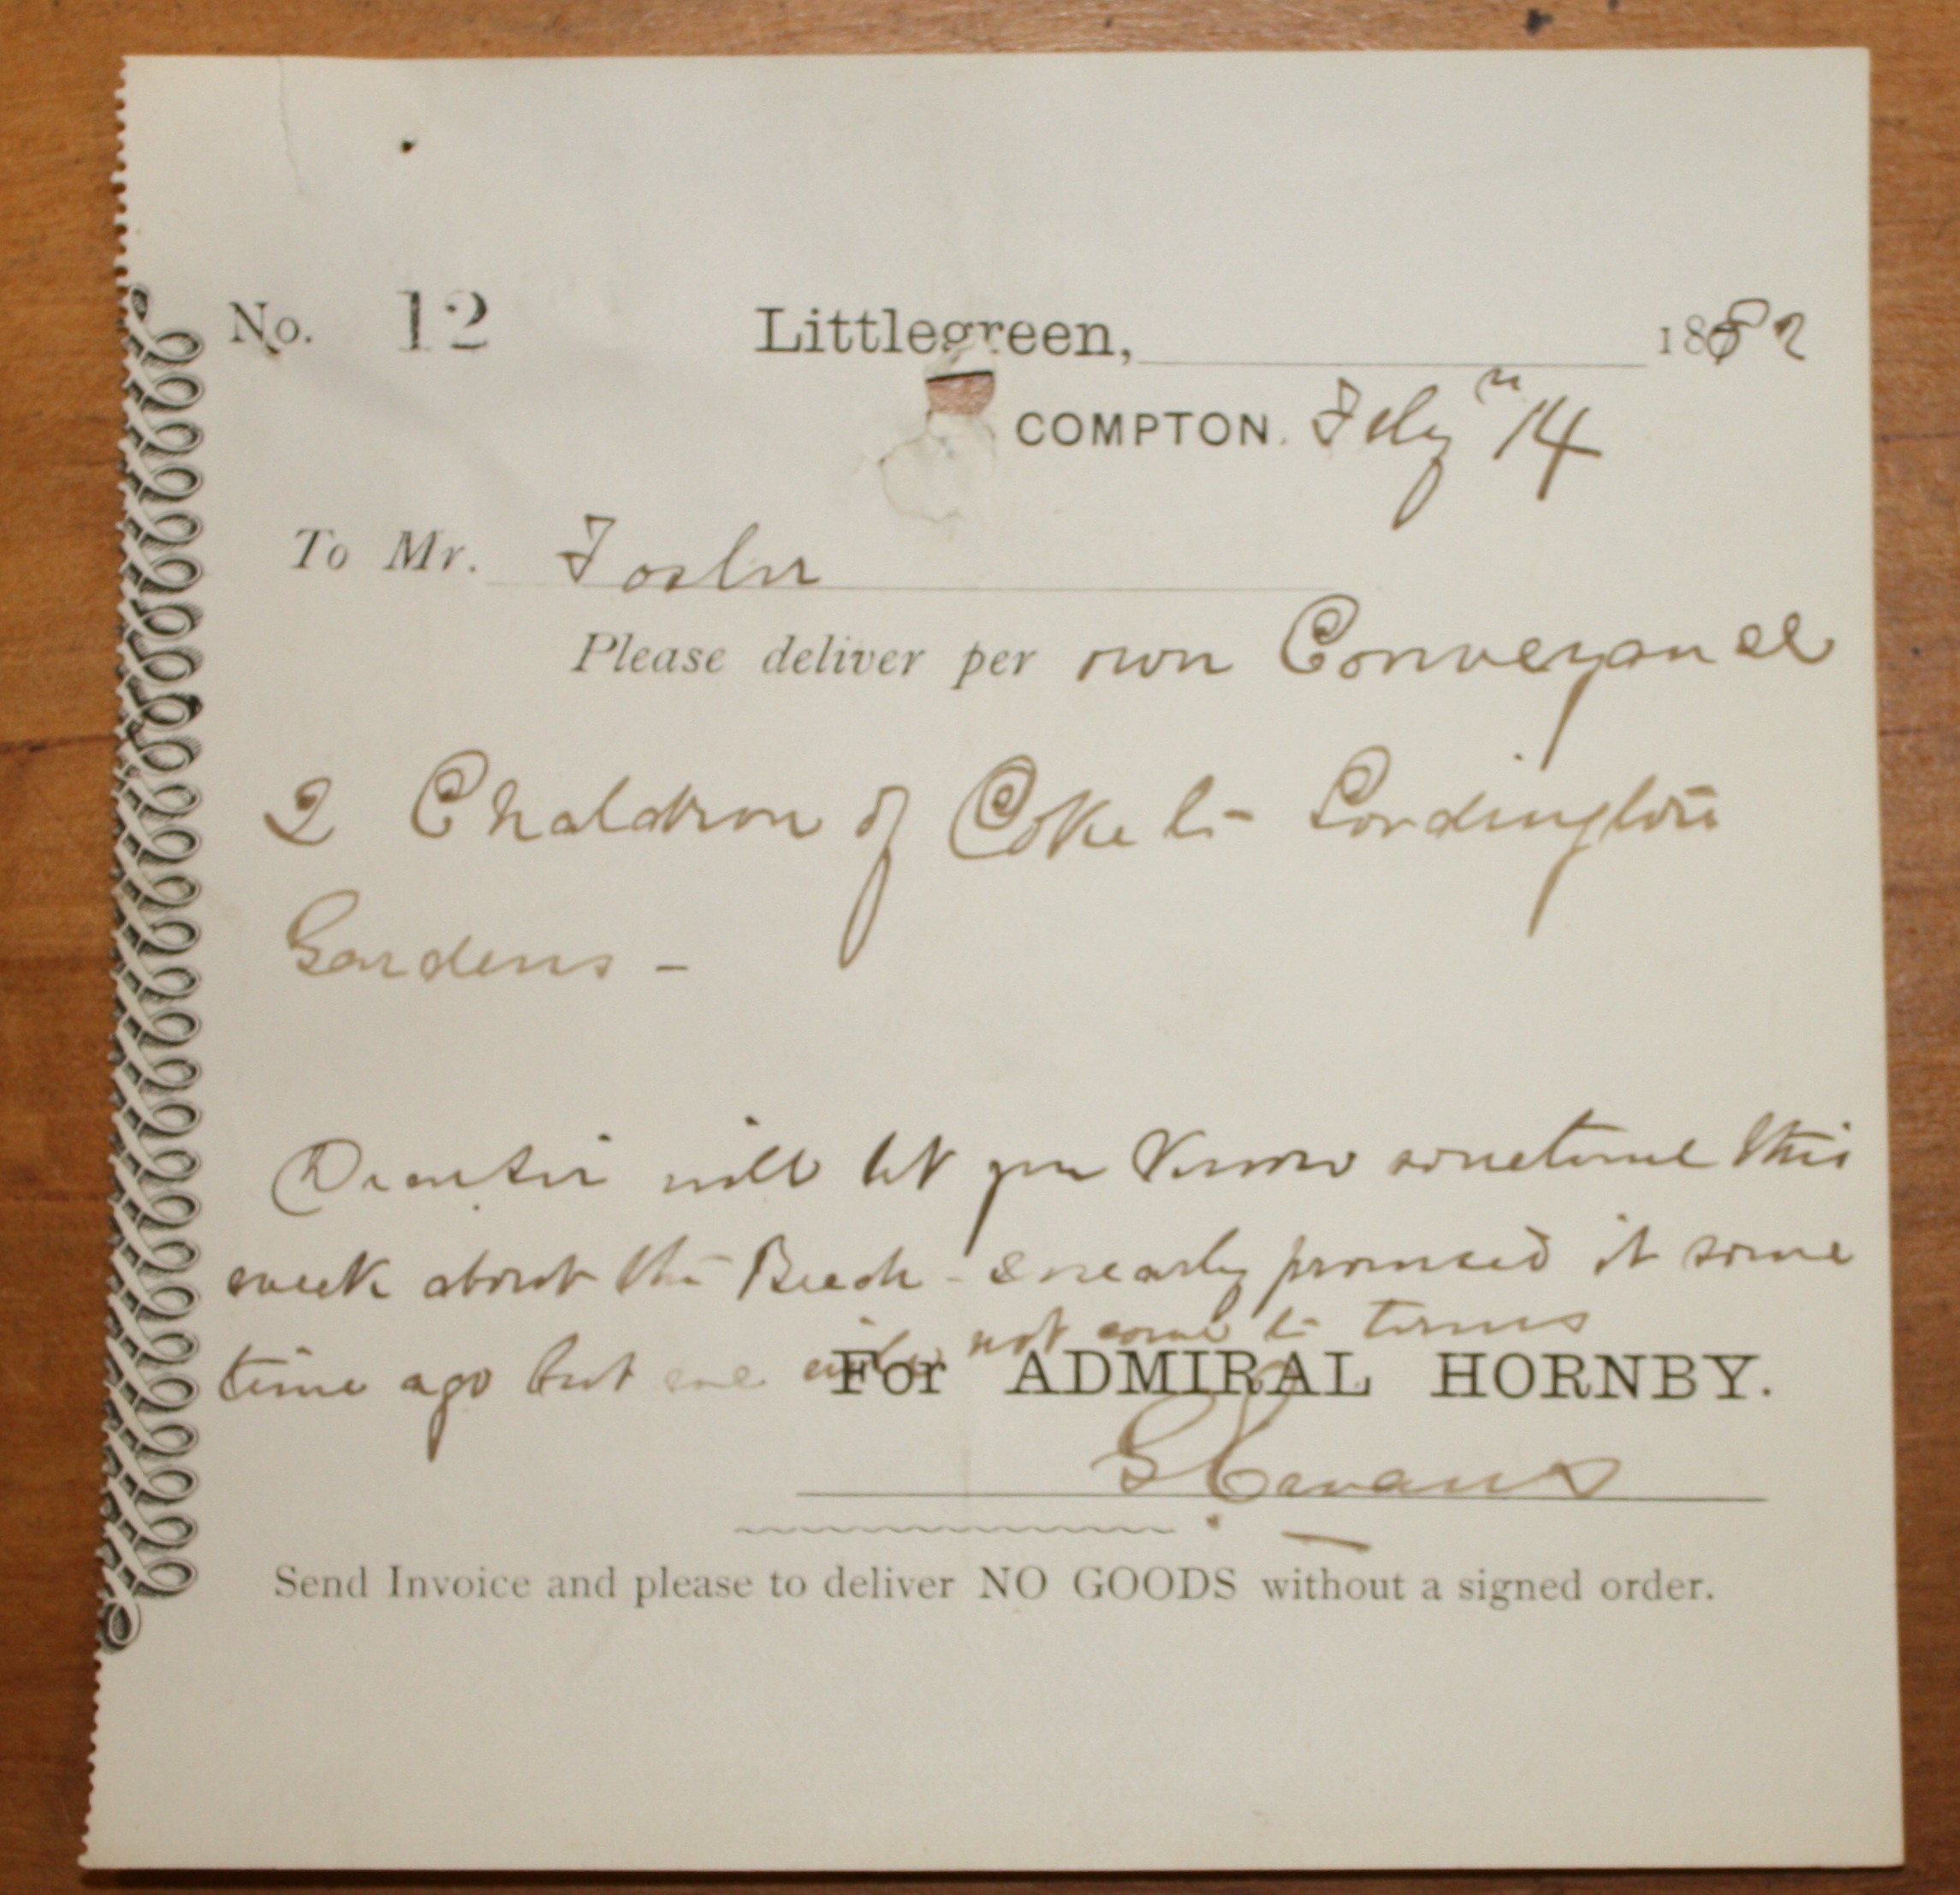 No. 12 Littlegreen, 1882
COMPTON. Feby 14
To Mr. Foster
Please deliver per own Conveyance
2 Chaldron of Coke to Lordington
Gardens -
will let you know sometime this
week about the Beech - nearly promised it some
time ago but not come to terms
For ADMIRAL HORNBY.
G Evans
Send Invoice and please to deliver NO GOODS without a signed order.